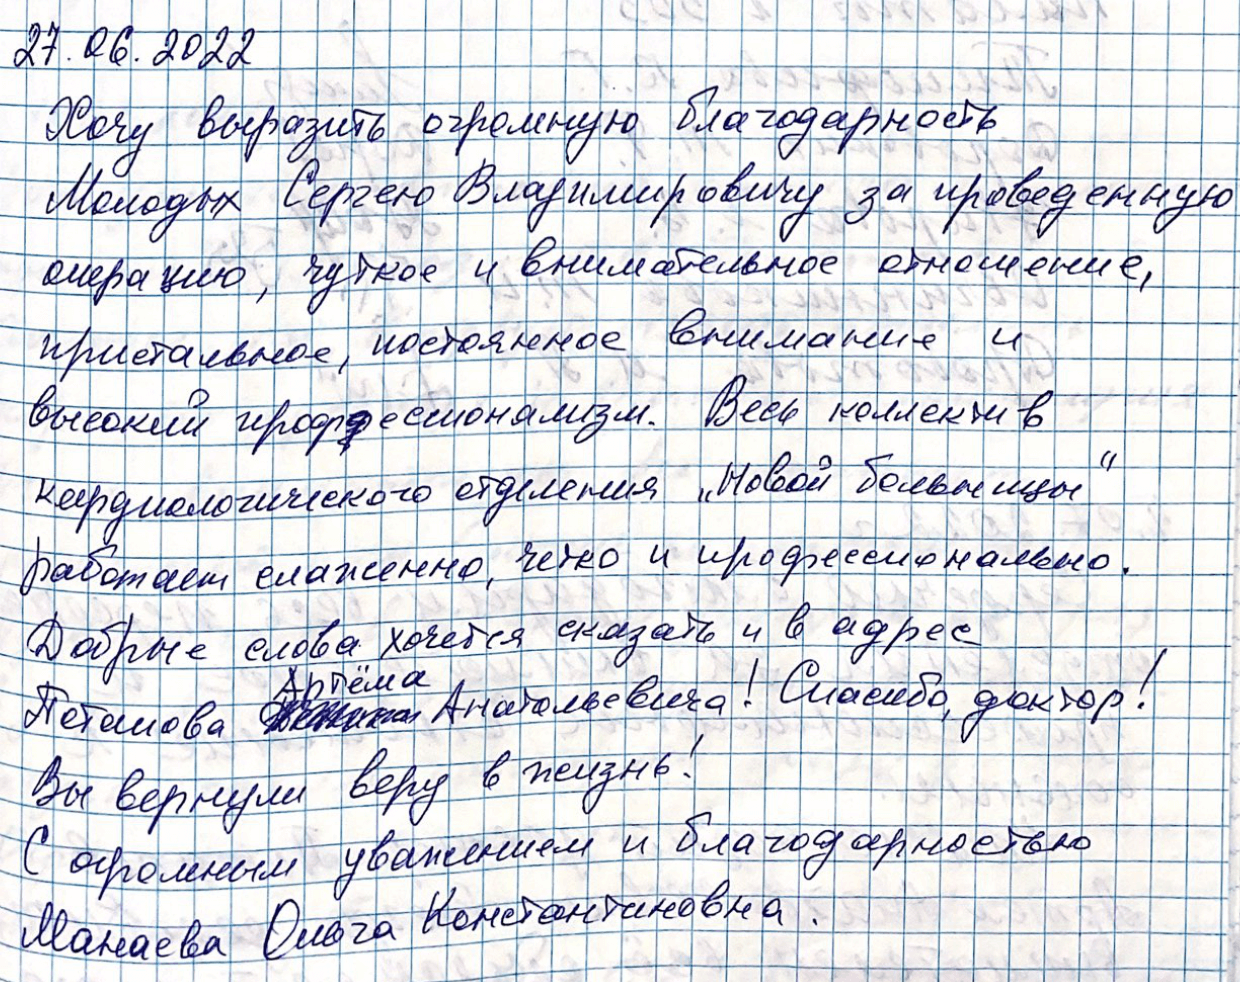 27.06.2022
Хочу выразить огромную благодарность
Молодых Сергею Владимировичу за проведенную
операцию, чуткое и внимательное отношение,
пристальное, постоянное внимание и
высокий профессионализм. Весь коллектив
кардиологического отделения „Новой больницы“
работает слаженно, четко и профессионально.
Добрые слова хочется сказать и в адрес
Потапова Артёма Анатольевича! Спасибо, доктор!
Вы вернули веру в жизнь!
С огромным уважением и благодарностью
Манаева Ольга Константиновна.